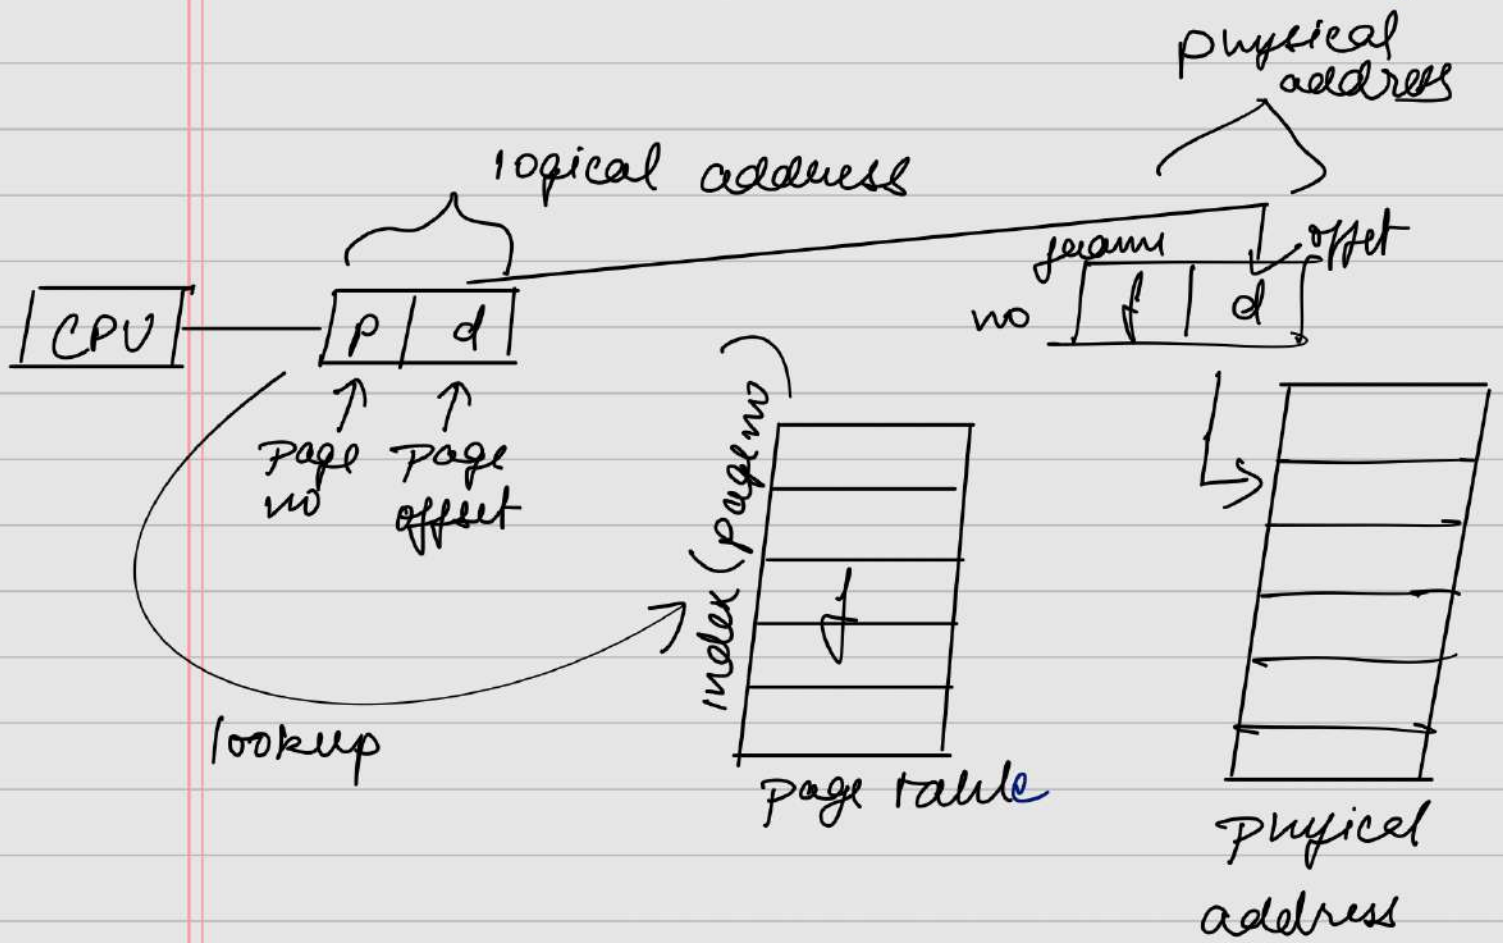 physical
address
logical address
frame
offet
CPU
p
d
no
f
d
page
no
page
offset
index (page no)
f
lookup
page table
phyical
address